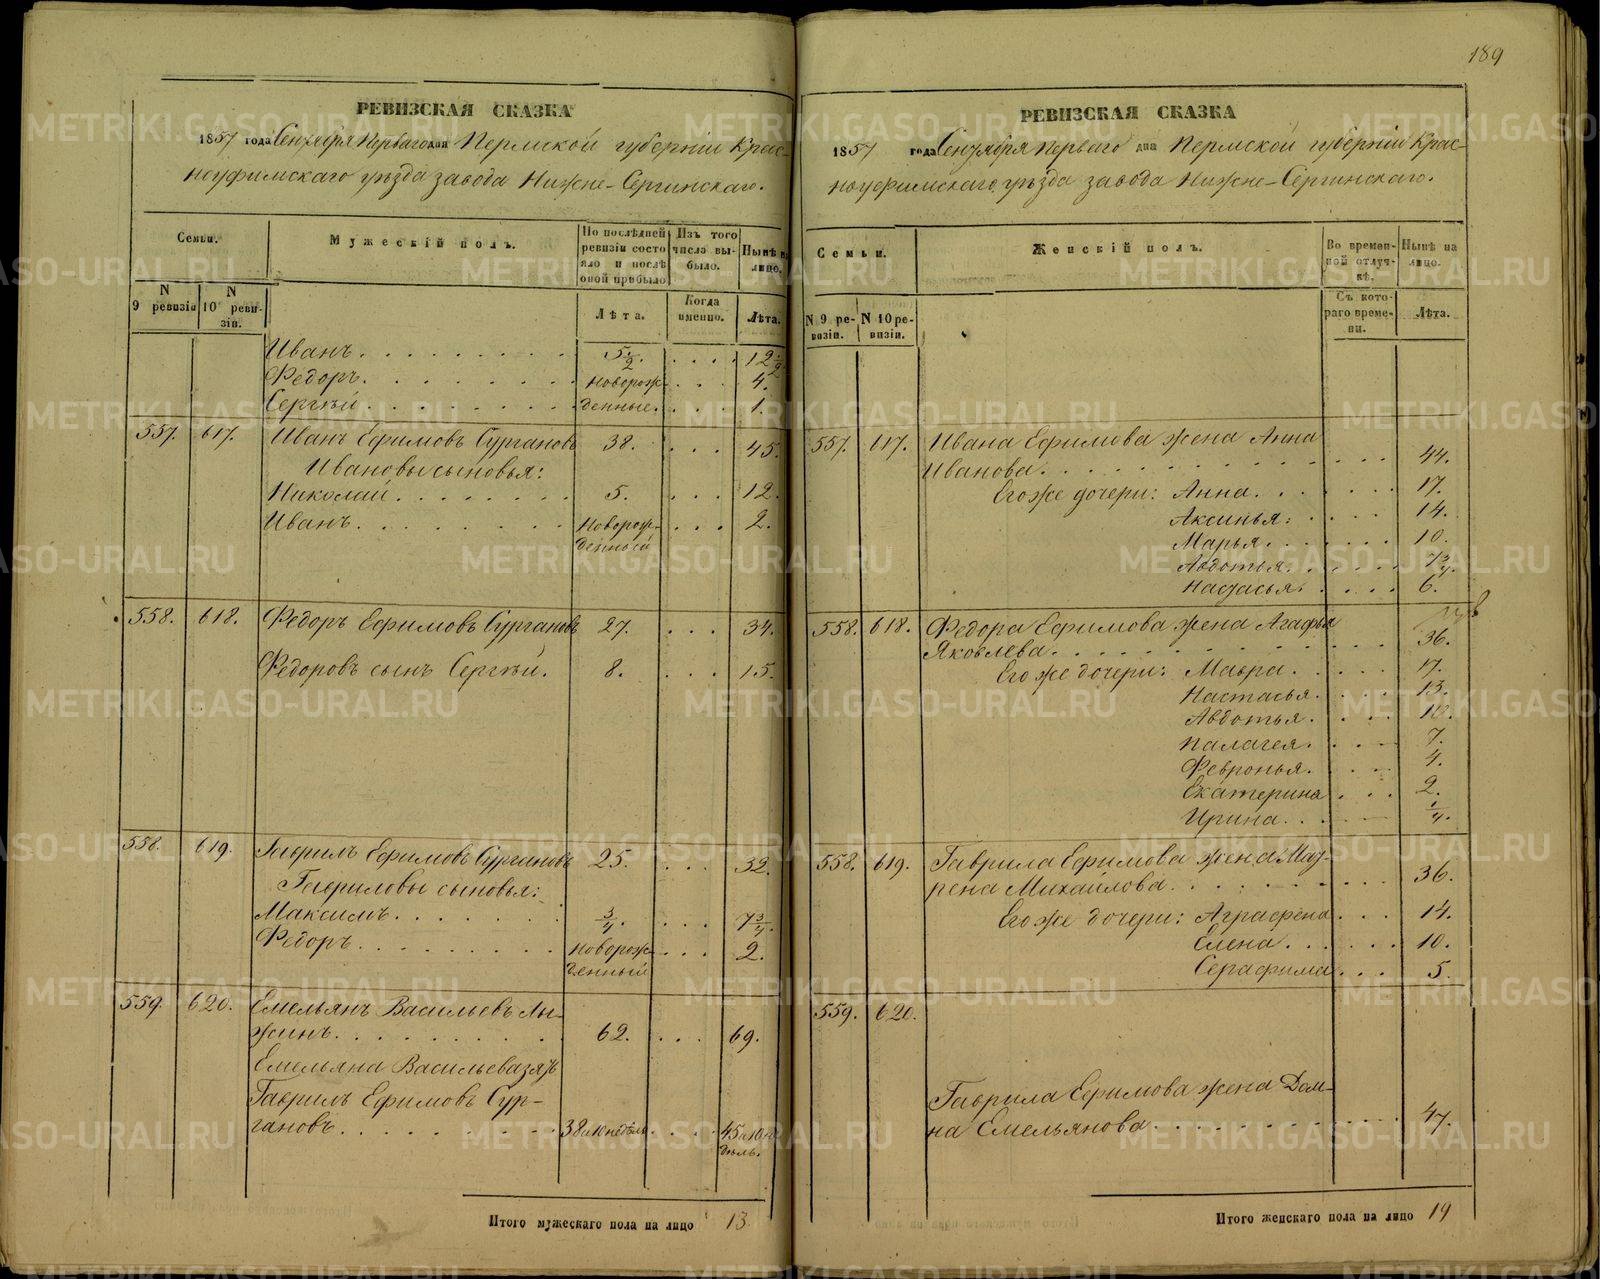 РЕВИЗСКАЯ СКАЗКА
1857 года Сентября Перваго дня Пермской губерніи Крас-
ноуфимскаго уѣзда завода Нижне-Сергинскаго.
Семьи.
Мужескій полъ.
По послѣдней ревизіи состояло и послѣ оной прибыло
Изъ того числа выбыло.
Нынѣ на лицо.
N 9 ревизіи
N 10 ревизіи.
Лѣта.
Когда именно.
Лѣта.
Иванъ. 5 1/2. 12 1/2
Федоръ. новорож- 4.
Сергѣй. денные. 1.
557. 617. Иванъ Ефимовъ Сургановъ 38. 45.
Ивановы сыновья:
Николай. 5. 12.
Иванъ. Новорож- 2.
денный
558. 618. Федоръ Ефимовъ Сургановъ 27. 34.
Федоровъ сынъ Сергѣй. 8. 15.
558. 619. Гаврилъ Ефимовъ Сургановъ 25. 32.
Гавриловы сыновья:
Максимъ. 3/4. 7 3/4.
Федоръ. новорож- 2.
денный
559. 620. Емельянъ Васильевъ Лы-
жинъ. 62. 69.
Емельяна Васильева зять
Гаврилъ Ефимовъ Сур-
гановъ. 38 и 10 недѣль. 45 и 10 не-
дѣль.
Итого мужескаго пола на лицо 13.
189
РЕВИЗСКАЯ СКАЗКА
1857 года Сентября Перваго дня Пермской губерніи Крас-
ноуфимскаго уѣзда завода Нижне-Сергинскаго.
Семьи.
Женскій полъ.
Во временной отлучкѣ.
Нынѣ на лицо.
N 9 ревизіи.
N 10 ревизіи.
Съ котораго времени.
Лѣта.
557. 617. Ивана Ефимова жена Анна
Иванова. 44.
Его же дочери: Анна. 17.
Аксинья. 14.
Марья. 10.
Авдотья. 7 3/4.
Настасья. 6.
558. 618. Федора Ефимова жена Агафья
Яковлева. 36.
Его же дочери: Мавра. 17.
Настасья. 13.
Авдотья. 10.
Палагея. 7.
Февронья. 4.
Екатерина 2.
Ирина. 1/4.
558. 619. Гаврила Ефимова жена Мат-
рена Михайлова. 36.
Его же дочери: Аграфена 14.
Елена. 10.
Серафима 5.
559. 620.
Гаврила Ефимова жена Дом-
на Емельянова. 47.
Итого женскаго пола на лицо 19
METRIKI.GASO-URAL.RU